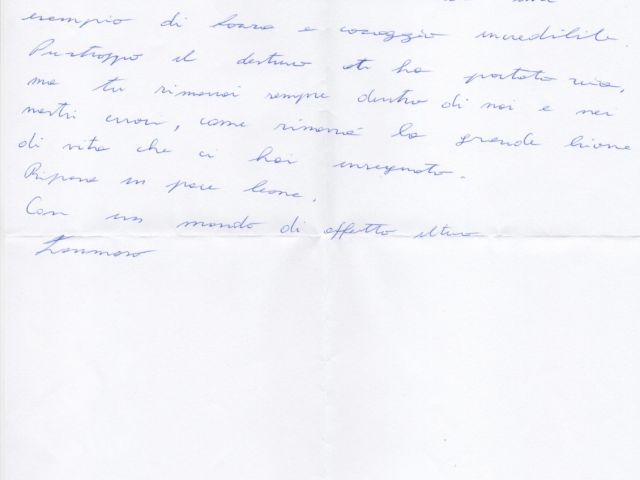 esempio di forza e coraggio incredibile.
Purtroppo il destino ti ha portato via,
ma tu rimarrai sempre dentro di noi e nei
nostri cuori, come rimarrà la grande lezione
di vita che ci hai insegnato.
Riposa in pace leone.
Con un mondo di affetto il tuo
Tommaso